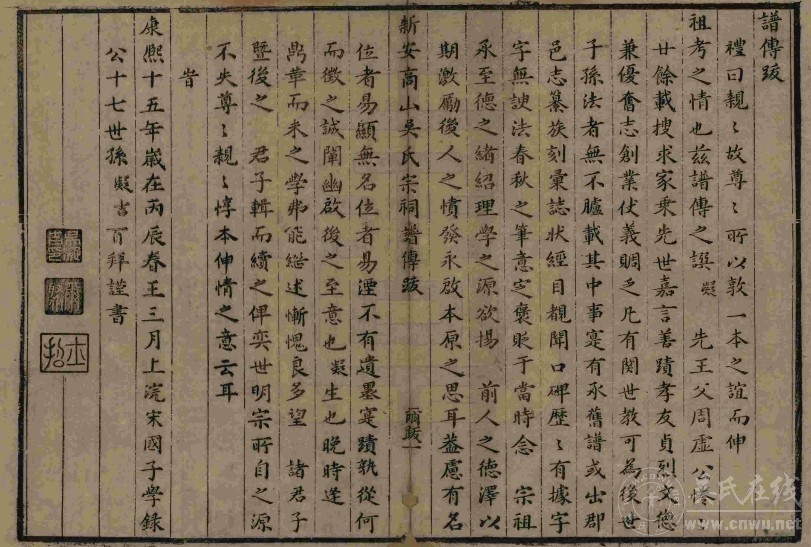 譜傳跋
禮曰親〻故尊〻所以敦一本之誼而伸
祖考之情也茲譜傳之譔凝　先王父周虛公
廿餘載搜求家乘先世嘉言善蹟孝友貞烈文德
兼優奮志創業仗義賙乏凡有関世教可為後世
子孫法者無不臚載其中事寔有承舊譜或出郡
邑志纂族刻彙誌狀經目覩聞口碑歷〻有據字
字無諛法春秋之筆意定褒貶于當時念　宗祖
承至德之緒紹理學之源欲揚　前人之德澤以
期激勵後人之憤發永啟本原之思耳葢慮有名
新安商山吳氏宗祠譜傳跋
爾跋一
位者易顯無名位者易湮不有遺墨寔蹟孰從何
而徵之誠闡幽啟後之至意也凝生也晚時逢
鼎革而未之學弗能継述慚愧良多望　諸君子
暨後之　君子輯而續之俾奕世明宗所自之源
不失尊〻親〻惇本伸情之意云耳
旹
康熙十五年嵗在丙辰春王三月上浣宋國子學錄
公十七世孫凝吉百拜謹書
吳氏在线
www.cnwu.net